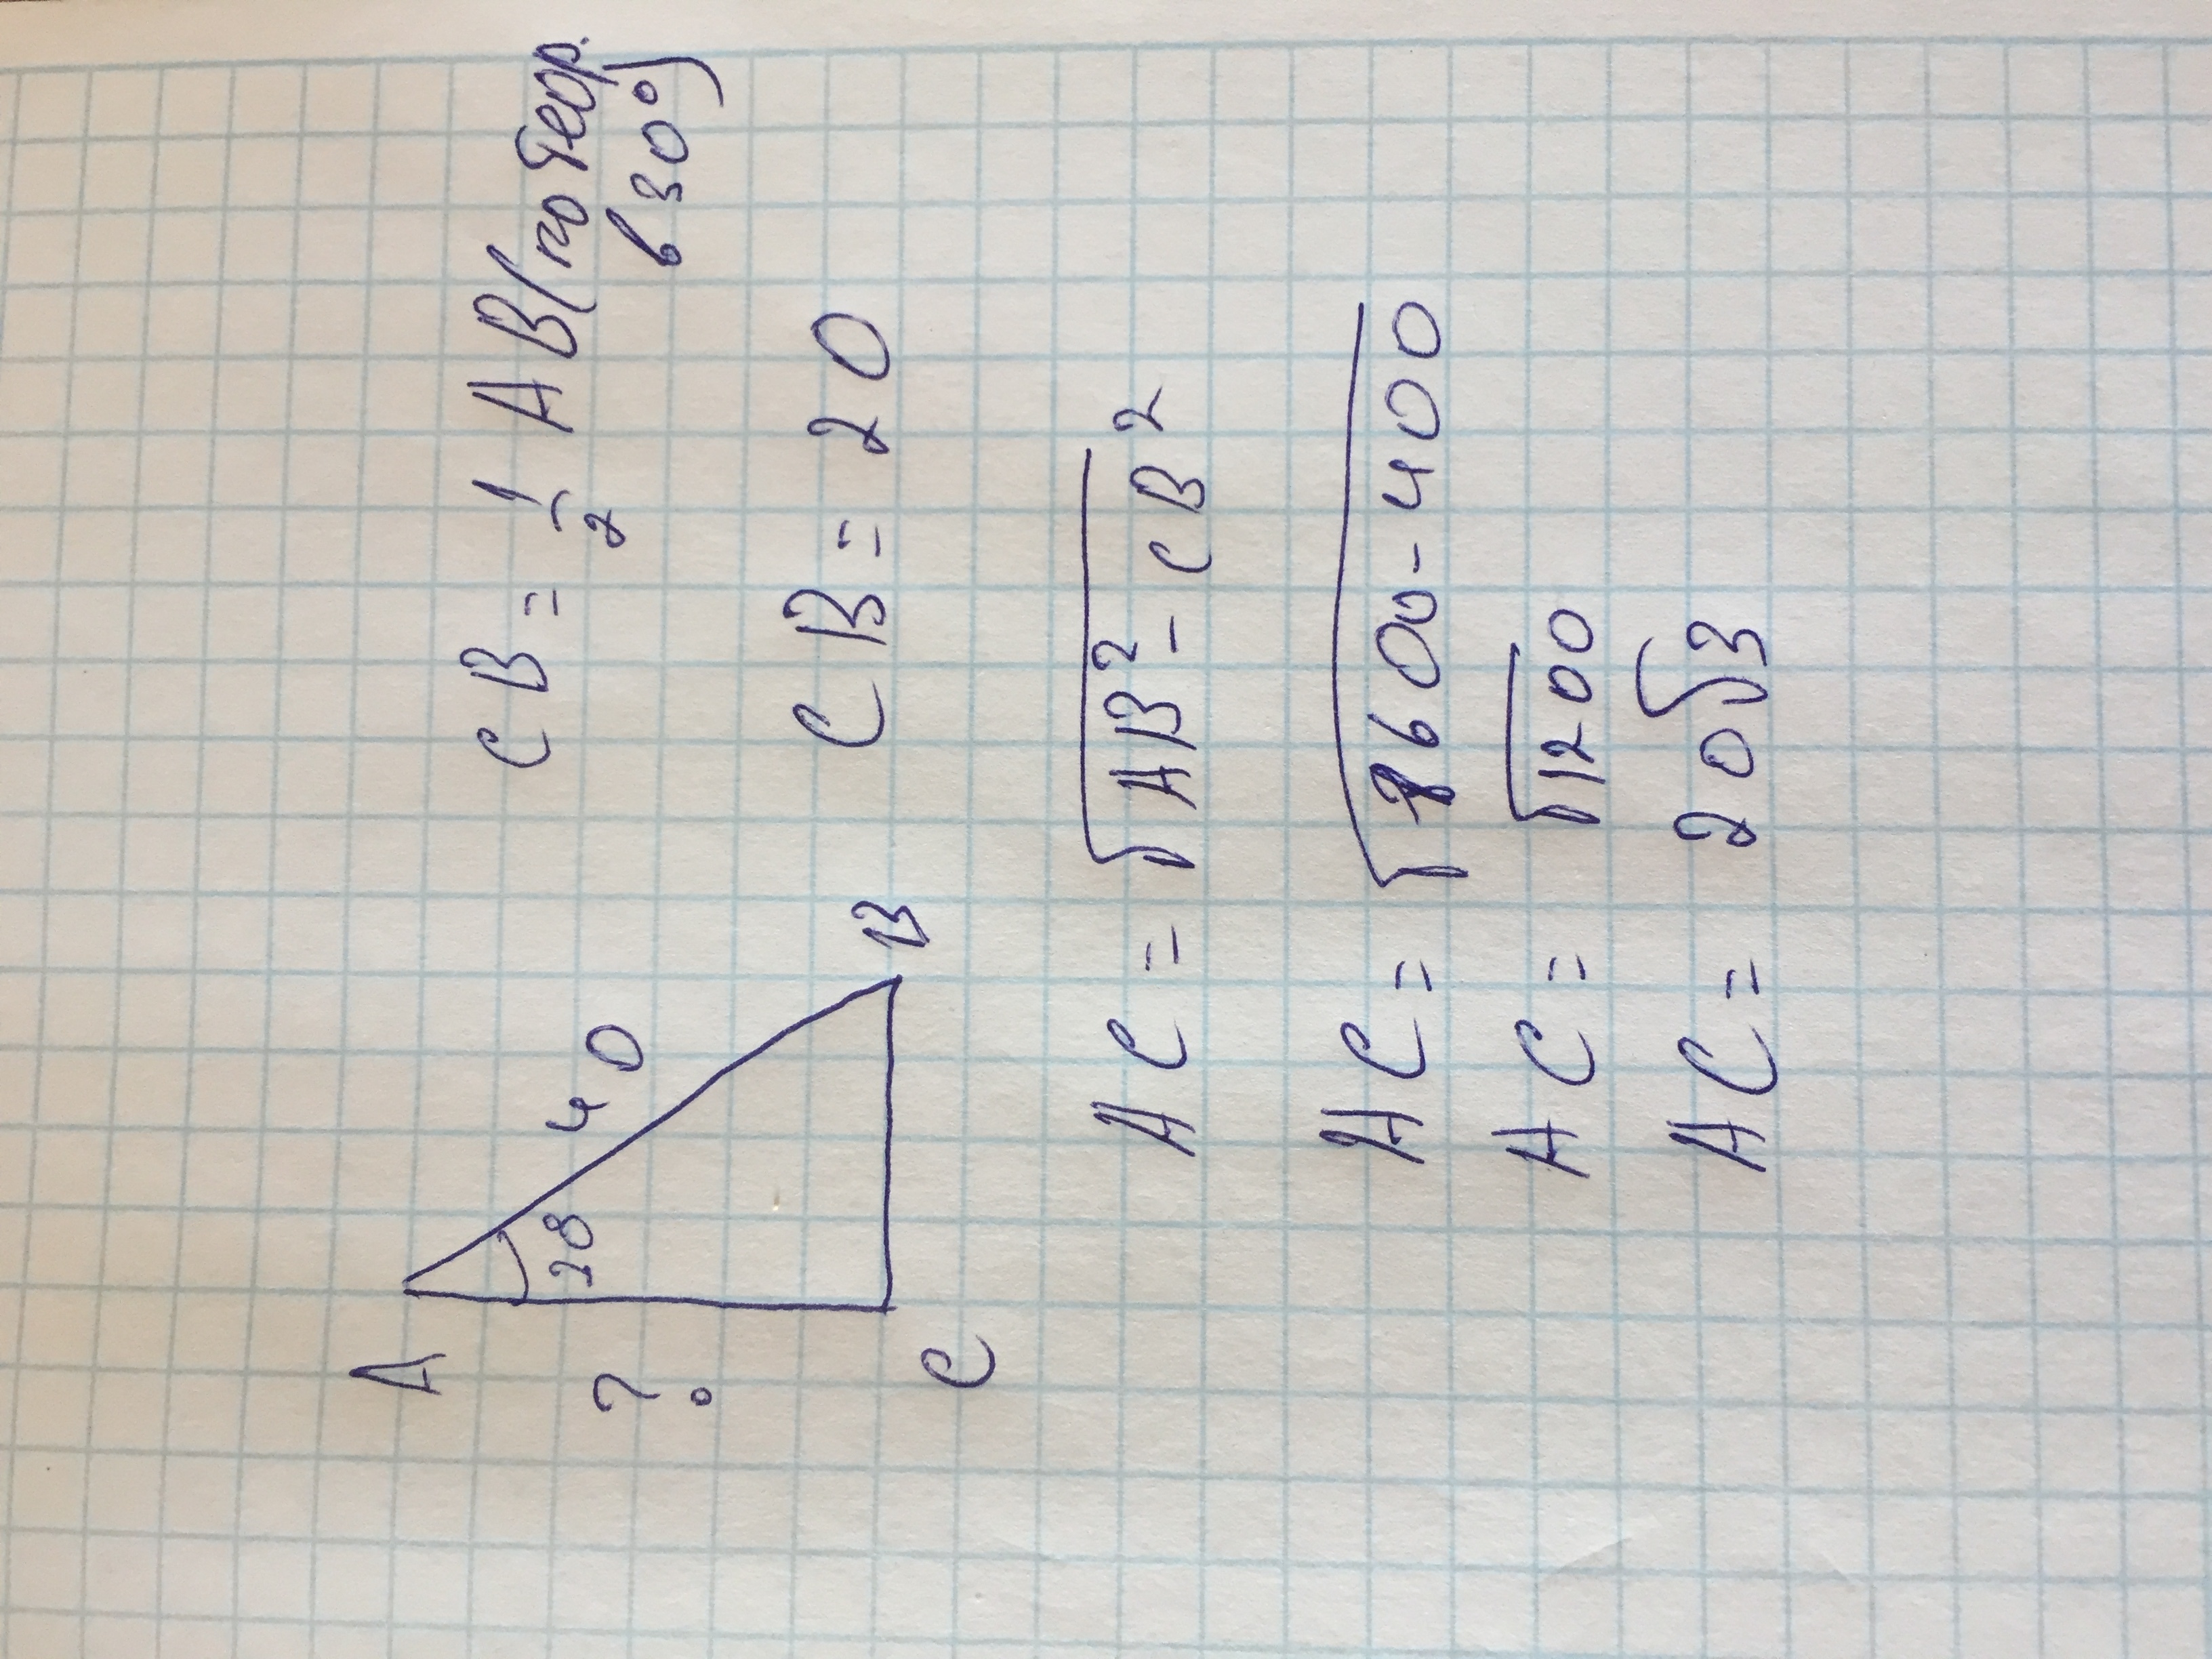 A
40
30
?
C
B
CB = 1/2 AB (по теор.
в 30°)
CB = 20
AC = √AB² - CB²
AC = √1600 - 400
AC = √1200
AC = 20√3